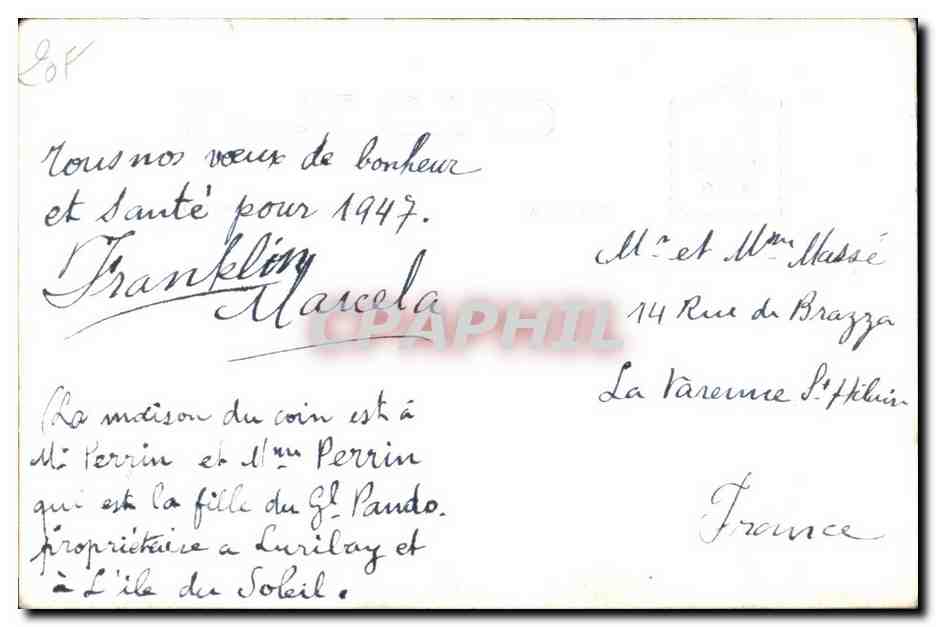 20F
Tous nos vœux de bonheur
et santé pour 1947.
Franklin
Marcela
(La maison du coin est à
Mr Perrin et Mme Perrin
qui est la fille du Gl Pando.
propriétaire a Luribay et
à L'ile du Soleil.
Mr et Mme Massé
14 Rue de Brazza
La Varenne St Hilaire
France
CPAPHIL